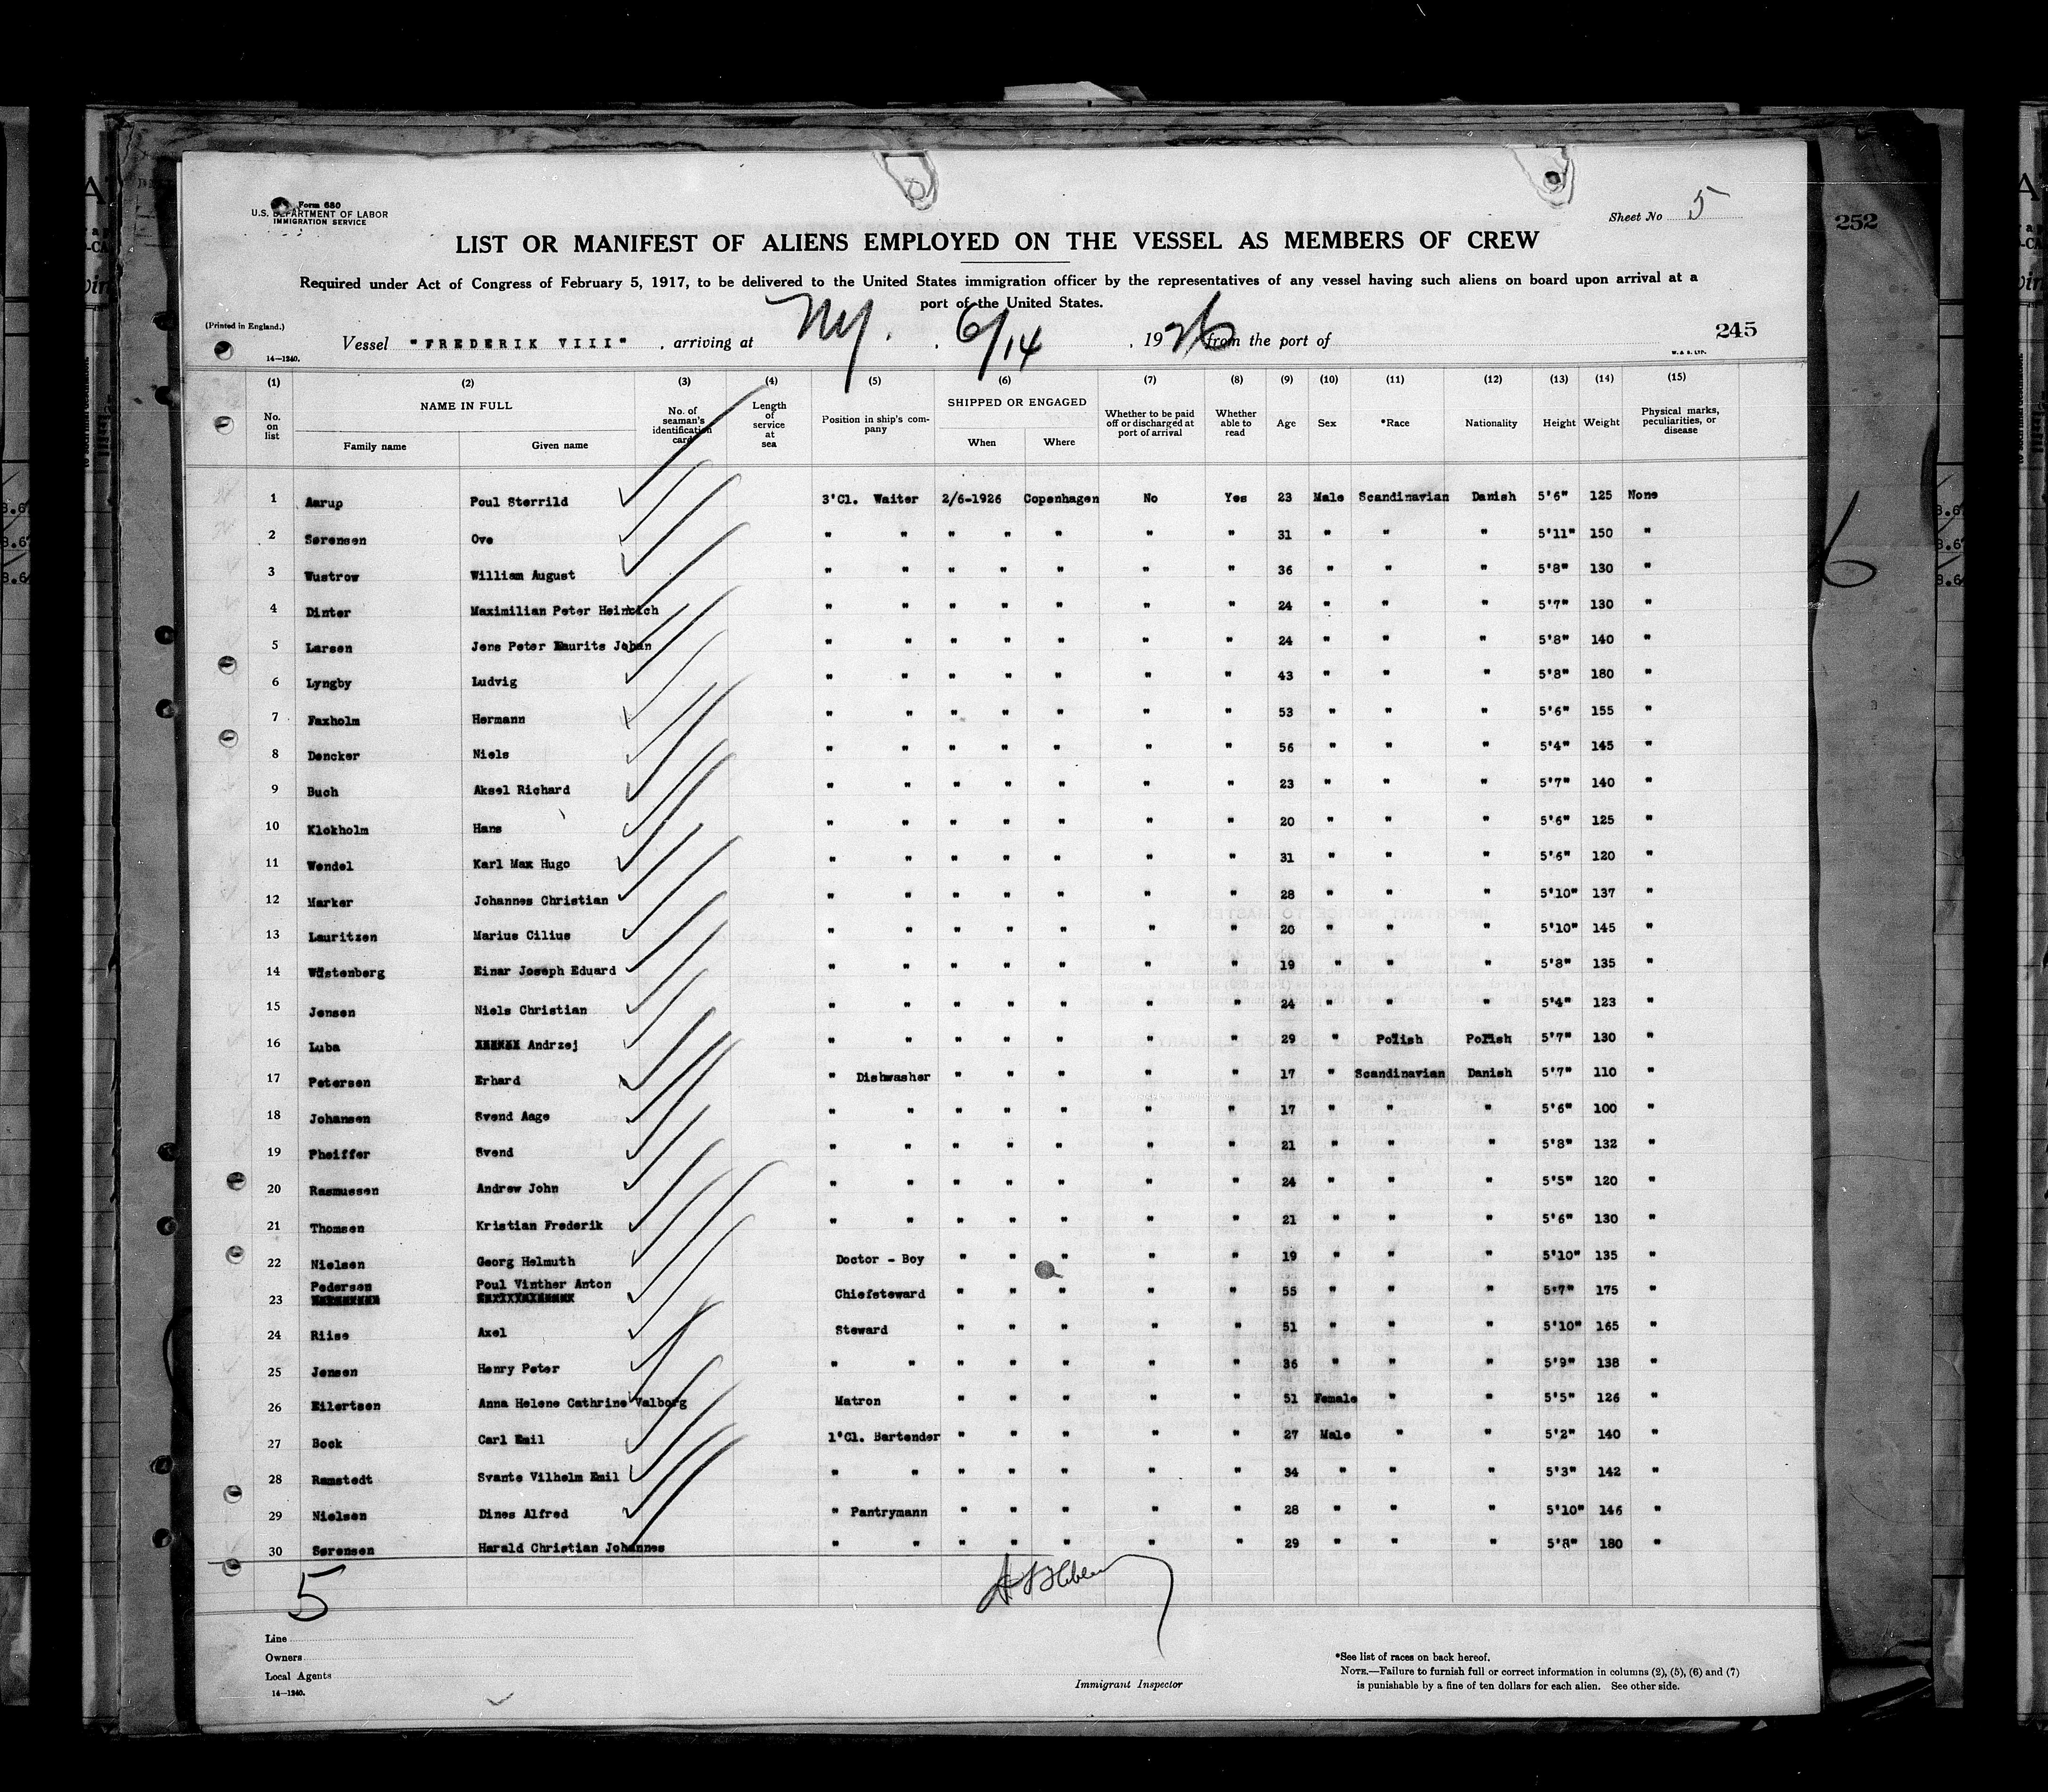 Form 680
U.S. DEPARTMENT OF LABOR
IMMIGRATION SERVICE
Sheet No 5
252
LIST OR MANIFEST OF ALIENS EMPLOYED ON THE VESSEL AS MEMBERS OF CREW
Required under Act of Congress of February 5, 1917, to be delivered to the United States immigration officer by the representatives of any vessel having such aliens on board upon arrival at a
port of the United States.
(Printed in England.)
Vessel "FREDERIK VIII", arriving at NY. 6/14, 1926 from the port of
245
14—1240.
W. & S. LTD.
(1) (2) (3) (4) (5) (6) (7) (8) (9) (10) (11) (12) (13) (14) (15)
No. on list
NAME IN FULL
Family name Given name
No. of seaman's identification card
Length of service at sea
Position in ship's company
SHIPPED OR ENGAGED
When Where
Whether to be paid off or discharged at port of arrival
Whether able to read
Age Sex *Race Nationality Height Weight
Physical marks, peculiarities, or disease
1 Aarup Poul Sterrild 3'Cl. Waiter 2/6-1926 Copenhagen No Yes 23 Male Scandinavian Danish 5'6" 125 None
2 Sørensen Ove " " " " " " " 31 " " " 5'11" 150 "
3 Wustrow William August " " " " " " " 36 " " " 5'8" 130 "
4 Dinter Maximilian Peter Heinrich " " " " " " " 24 " " " 5'7" 130 "
5 Larsen Jens Peter Laurits Johan " " " " " " " 24 " " " 5'8" 140 "
6 Lyngby Ludvig " " " " " " " 43 " " " 5'8" 180 "
7 Faxholm Hermann " " " " " " " 53 " " " 5'6" 155 "
8 Dencker Niels " " " " " " " 56 " " " 5'4" 145 "
9 Buch Aksel Richard " " " " " " " 23 " " " 5'7" 140 "
10 Klokholm Hans " " " " " " " 20 " " " 5'6" 125 "
11 Wendel Karl Max Hugo " " " " " " " 31 " " " 5'6" 120 "
12 Marker Johannes Christian " " " " " " " 28 " " " 5'10" 137 "
13 Lauritzen Marius Cilius " " " " " " " 20 " " " 5'10" 145 "
14 Wüstenberg Einar Joseph Eduard " " " " " " " 19 " " " 5'8" 135 "
15 Jensen Niels Christian " " " " " " " 24 " " " 5'4" 123 "
16 Luba Andrzej " " " " " " " 29 " Polish Polish 5'7" 130 "
17 Petersen Erhard " Dishwasher " " " " " 17 " Scandinavian Danish 5'7" 110 "
18 Johansen Svend Aage " " " " " " " 17 " " " 5'6" 100 "
19 Pheiffer Svend " " " " " " " 21 " " " 5'8" 132 "
20 Rasmussen Andrew John " " " " " " " 24 " " " 5'5" 120 "
21 Thomsen Kristian Frederik " " " " " " " 21 " " " 5'6" 130 "
22 Nielsen Georg Helmuth Doctor - Boy " " " " " 19 " " " 5'10" 135 "
23 Pedersen Poul Vinther Anton Chiefsteward " " " " " 55 " " " 5'7" 175 "
24 Riise Axel Steward " " " " " 51 " " " 5'10" 165 "
25 Jensen Henry Peter " " " " " " " 36 " " " 5'9" 138 "
26 Eilertsen Anna Helene Cathrine Valborg Matron " " " " " 51 Female " " 5'5" 126 "
27 Bock Carl Emil 1'Cl. Bartender " " " " " 27 Male " " 5'2" 140 "
28 Ramstedt Svante Vilhelm Emil " " " " " " " 34 " " " 5'3" 142 "
29 Nielsen Dines Alfred " Pantrymann " " " " " 28 " " " 5'10" 146 "
30 Sørensen Harald Christian Johannes " " " " " " " 29 " " " 5'8" 180 "
5
Line
Owners
Local Agents
14—1240.
Immigrant Inspector
*See list of races on back hereof.
NOTE.—Failure to furnish full or correct information in columns (2), (5), (6) and (7)
is punishable by a fine of ten dollars for each alien. See other side.